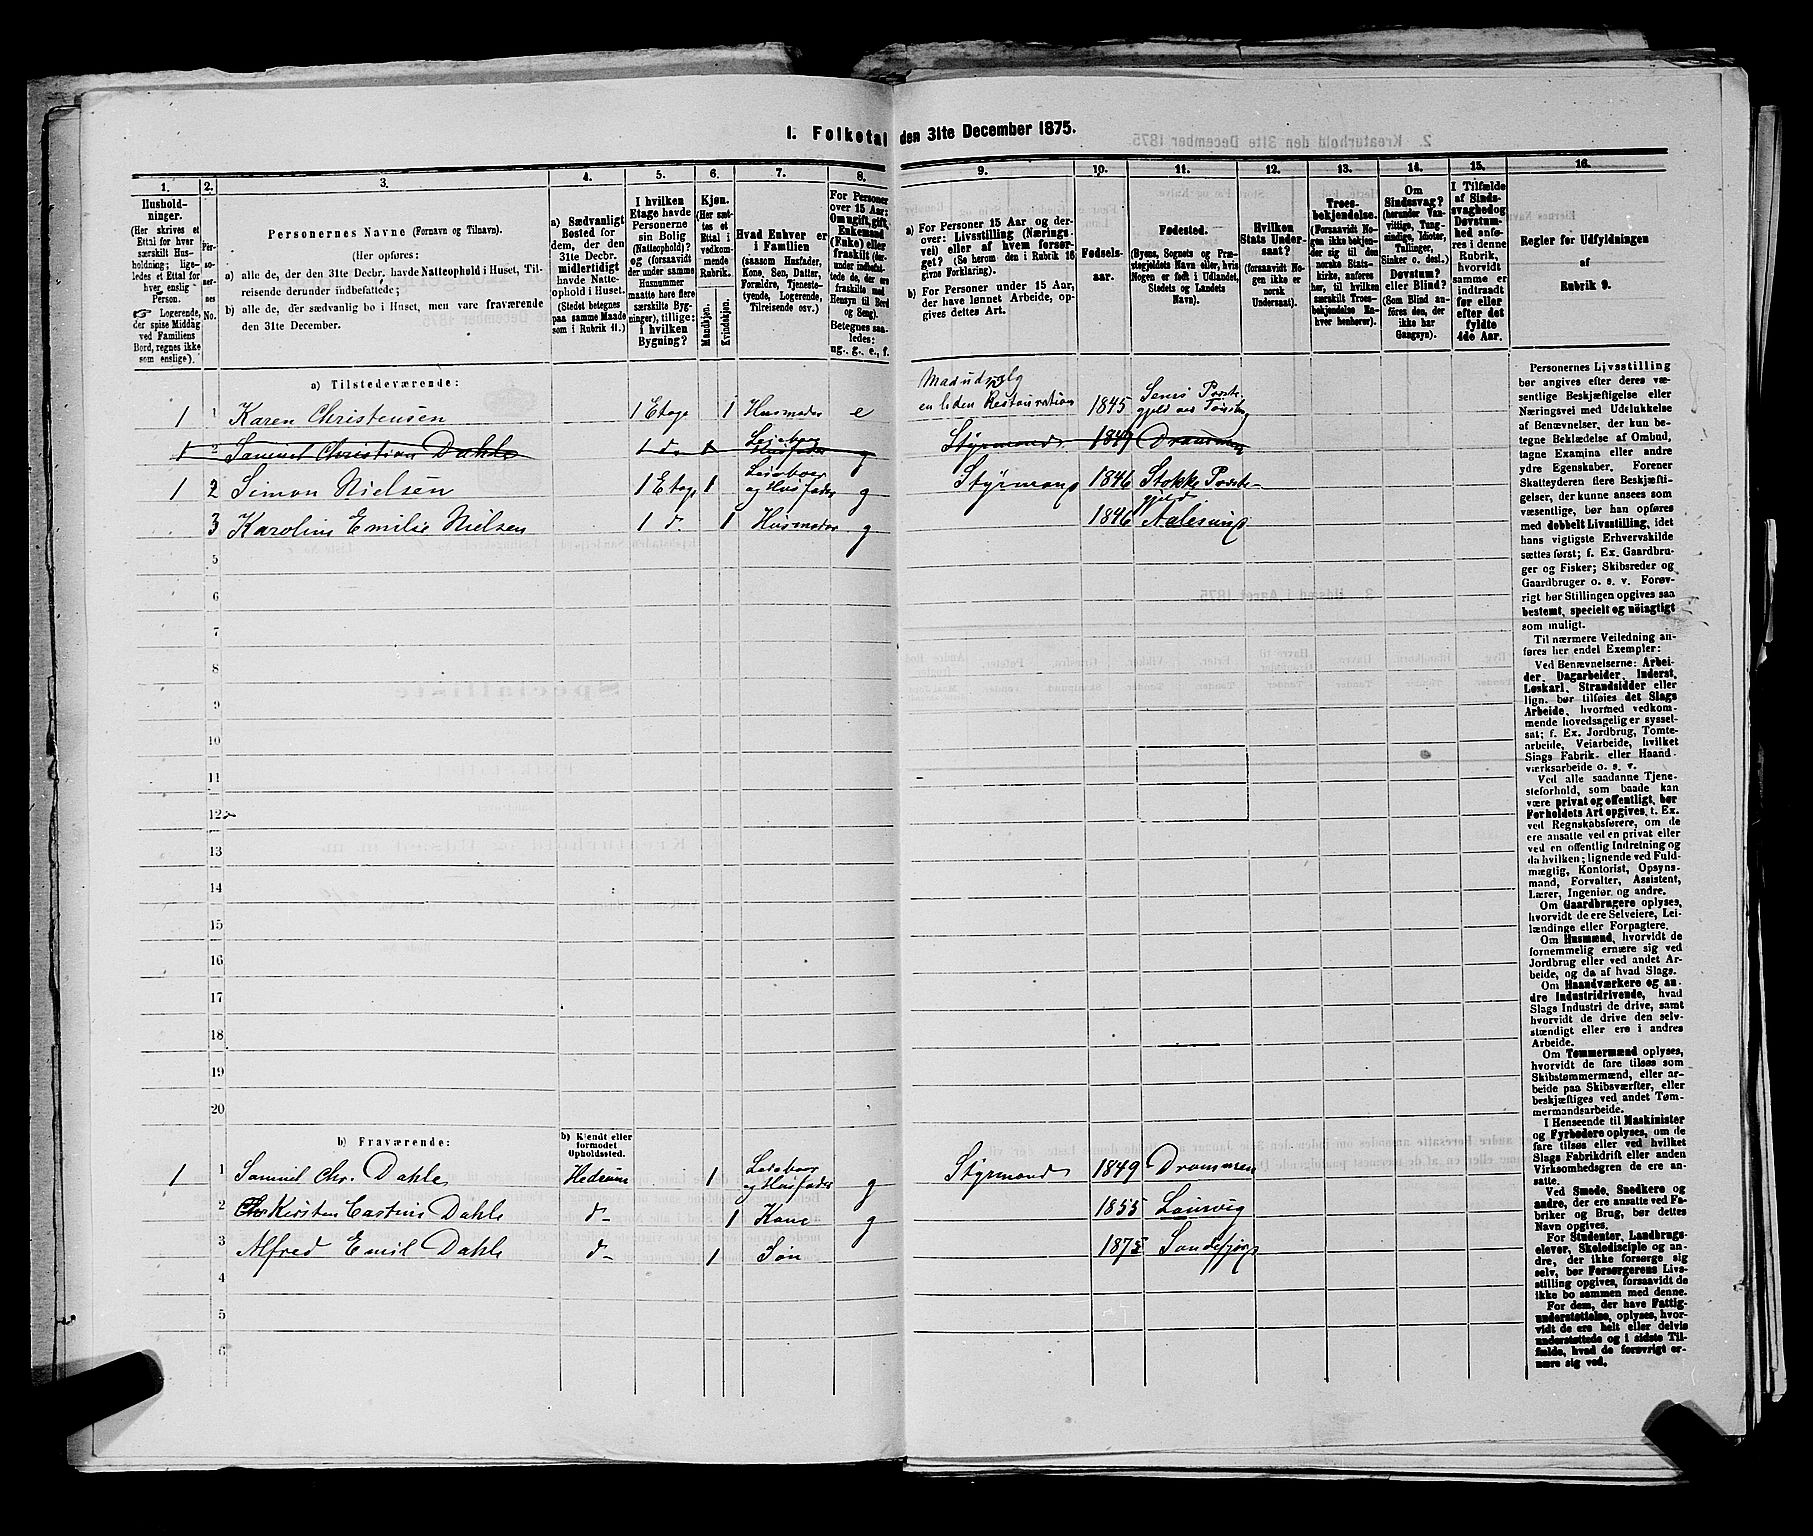 1. Folketal den 31te December 1875.
1. 2. 3. 4. 5. 6. 7. 8. 9. 10. 11. 12. 13. 14. 15. 16.
Husholdninger.
(Her skrives et
Ettal for hver
særskilt Husholdning;
ligeledes et Ettal for
hver enslig
Person.
☞ Logerende,
der spise Middag
ved Familiens
Bord, regnes ikke
som enslige).
Personernes No.
Personernes Navne (Fornavn og Tilnavn).
(Her opføres:
a) alle de, der den 31te Decbr. havde Natteophold i Huset, Tilreisende derunder indbefattede;
b) alle de, der sædvanlig bo i Huset, men vare fraværende
den 31te December.
a) Sædvanligt
Bosted for
dem, der den
31te Decbr.
midlertidigt
havde Natteophold i Huset.
(Stedet betegnes
paa samme Maade
som i Rubrik 11.)
I hvilken
Etage havde
Personerne
sin Bolig
(Natteophold)?
og (forsaavidt
der under samme
Husnummer
maatte høre flere
særskilte Bygninger), tillige:
i hvilken
Bygning?
Kjøn.
(Her sættes et
Ettal i
vedkommende
Rubrik.
Mandkjøn.
Kvindekjøn.
Hvad Enhver er
i Familien
(saasom Husfader,
Kone, Søn, Datter,
Forældre, Tjenestetyende, Logerende,
Tilreisende osv.)
For Personer
over 15 Aar:
Om ugift, gift,
Enkemand
(Enke) eller
fraskilt
Betegnes saaledes:
ug., g., e., f.
a) For Personer 15 Aar og derover: Livsstilling (Næringsvei) eller af hvem forsørget? (Se herom den i Rubrik 16
givne Forklaring).
b) For Personer under 15 Aar,
der have lønnet Arbeide, opgives dettes Art.
Fødselsaar.
Fødested.
(Byens, Sognets og Præstegjeldets Navn eller, hvis
Nogen er født i Udlandet,
Stedets og Landets
Navn).
Hvilken
Stats Undersaat?
(forsaavidt Nogen ikke er
norsk
Undersaat).
Troesbekjendelse.
(Forsaavidt Nogen ikke bekjender sig til den
norske Statskirke, anføres
her, til hvilken
særskilt Troesbekjendelse Enhver henhører).
Om
Sindssvag?
(herunder Vanvittige, Tungsindige, Idioter,
Tullinger,
Sinker o. desl.)
Døvstum?
eller Blind?
(Som Blind anføres den, der
ikke har
Gangsyn).
I Tilfælde
af Sindssvaghed og
Døvstumhed anføres i denne
Rubrik,
hvorvidt
samme er
indtraadt
før eller
efter det
fyldte
4de Aar.
Regler for Udfyldningen
af
Rubrik 9.
a) Tilstedeværende:
1 1 Karen Christensen 1 Etage 1 Husmoder e Madudsalg en liden Restauration 1845 Sems Præstegjeld ved Tønsberg
1 2 Samuel Christian Dahle 1 do 1 Leieboer Husfader g Styrmand 1849 Drammen
1 2 Simon Nielsen 1 Etage 1 Leieboer og Husfader g Styrmand 1846 Stokke Præstegjeld
3 Karoline Emilie Nielsen 1 do 1 Husmoder g 1846 Aalesund
5
6
7
8
9
10
11
12
13
14
15
16
17
18
19
20
b) Fraværende:
b) Kjendt eller
formodet
Opholdssted.
1 1 Samuel Chr. Dahle Hedrum 1 Leieboer og Husfader g Styrmand 1849 Drammen
2 Kirsten Dahle do 1 Kone g 1855 Laurvig
3 Alfred Emil Dahle do 1 Søn 1875 Sandefjord
4
5
6
Personernes Livsstilling
bør angives efter deres væsentlige Beskjæftigelse eller
Næringsvei med Udelukkelse
af Benævnelser, der kun betegne Beklædelse af Ombud,
tagne Examina eller andre
ydre Egenskaber. Forener
Skatteyderen flere Beskjæftigelser, der kunne ansees som
væsentlige, bør han opføres
med dobbelt Livsstilling, idet
hans vigtigste Erhvervskilde
sættes først; f. Ex. Gaardbruger og Fisker; Skibsreder og
Gaardbruger o. s. v. Forøvrigt bør Stillingen opgives saa
bestemt, specielt og nöiagtigt
som muligt.
Til nærmere Veiledning anføres her endel Exempler:
Ved Benævnelserne: Arbeider, Dagarbeider, Inderst,
Løskarl, Strandsidder eller
lign. bør tilføies det Slags
Arbeide, hvormed vedkommende hovedsagelig er sysselsat; f. Ex. Jordbrug, Tomtearbeide, Veiarbeide, hvilket
Slags Fabrik- eller Haandværksarbeide o. s. v.
Ved alle saadanne Tjenesteforhold, som baade kan
være privat og offentligt, bør
Forholdets Art opgives, t. Ex.
ved Regnskabsførere, om de
ere ansatte ved en privat eller
ved en offentlig Indretning og
da hvilken; lignende ved Fuldmægtig, Kontorist, Opsynsmand, Forvalter, Assistent,
Lærer, Ingeniør og andre.
Om Gaardbrugere oplyses,
hvorvidt de ere Selveiere, Leilændinge eller Forpagtere.
Om Husmænd, hvorvidt de
fornemmelig ernære sig ved
Jordbrug eller ved andet Arbeide, og da af hvad Slags.
Om Haandværkere og andre Industridrivende, hvad
Slags Industri de drive, samt
hvorvidt de drive den selvstændigt eller ere i andres
Arbeide.
Om Tømmermænd oplyses,
hvorvidt de fare tilsøs som
Skibstømmermænd, eller arbeide paa Skibsværfter, eller
beskjæftiges ved andet Tømmermandsarbeide.
I Henseende til Maskinister
og Fyrbødere oplyses, om de
fare tilsøs eller ved hvilket
Slags Fabrikdrift eller anden
Virksomhedsgren de ere ansatte.
Ved Smede, Snedkere og
andre, der ere ansatte ved Fabriker og Brug, bør dettes
Navn opgives.
For Studenter, Landbrugselever, Skoledisciple og andre, der ikke forsørge sig
selv, bør Forsørgerens Livsstilling opgives, forsaavidt de
ikke bo sammen med denne.
For dem, der have Fattigunderstøttelse, oplyses, hvorvidt de ere helt eller delvis
understøttede og i sidste Tilfælde, hvad de forøvrigt ernære sig ved.